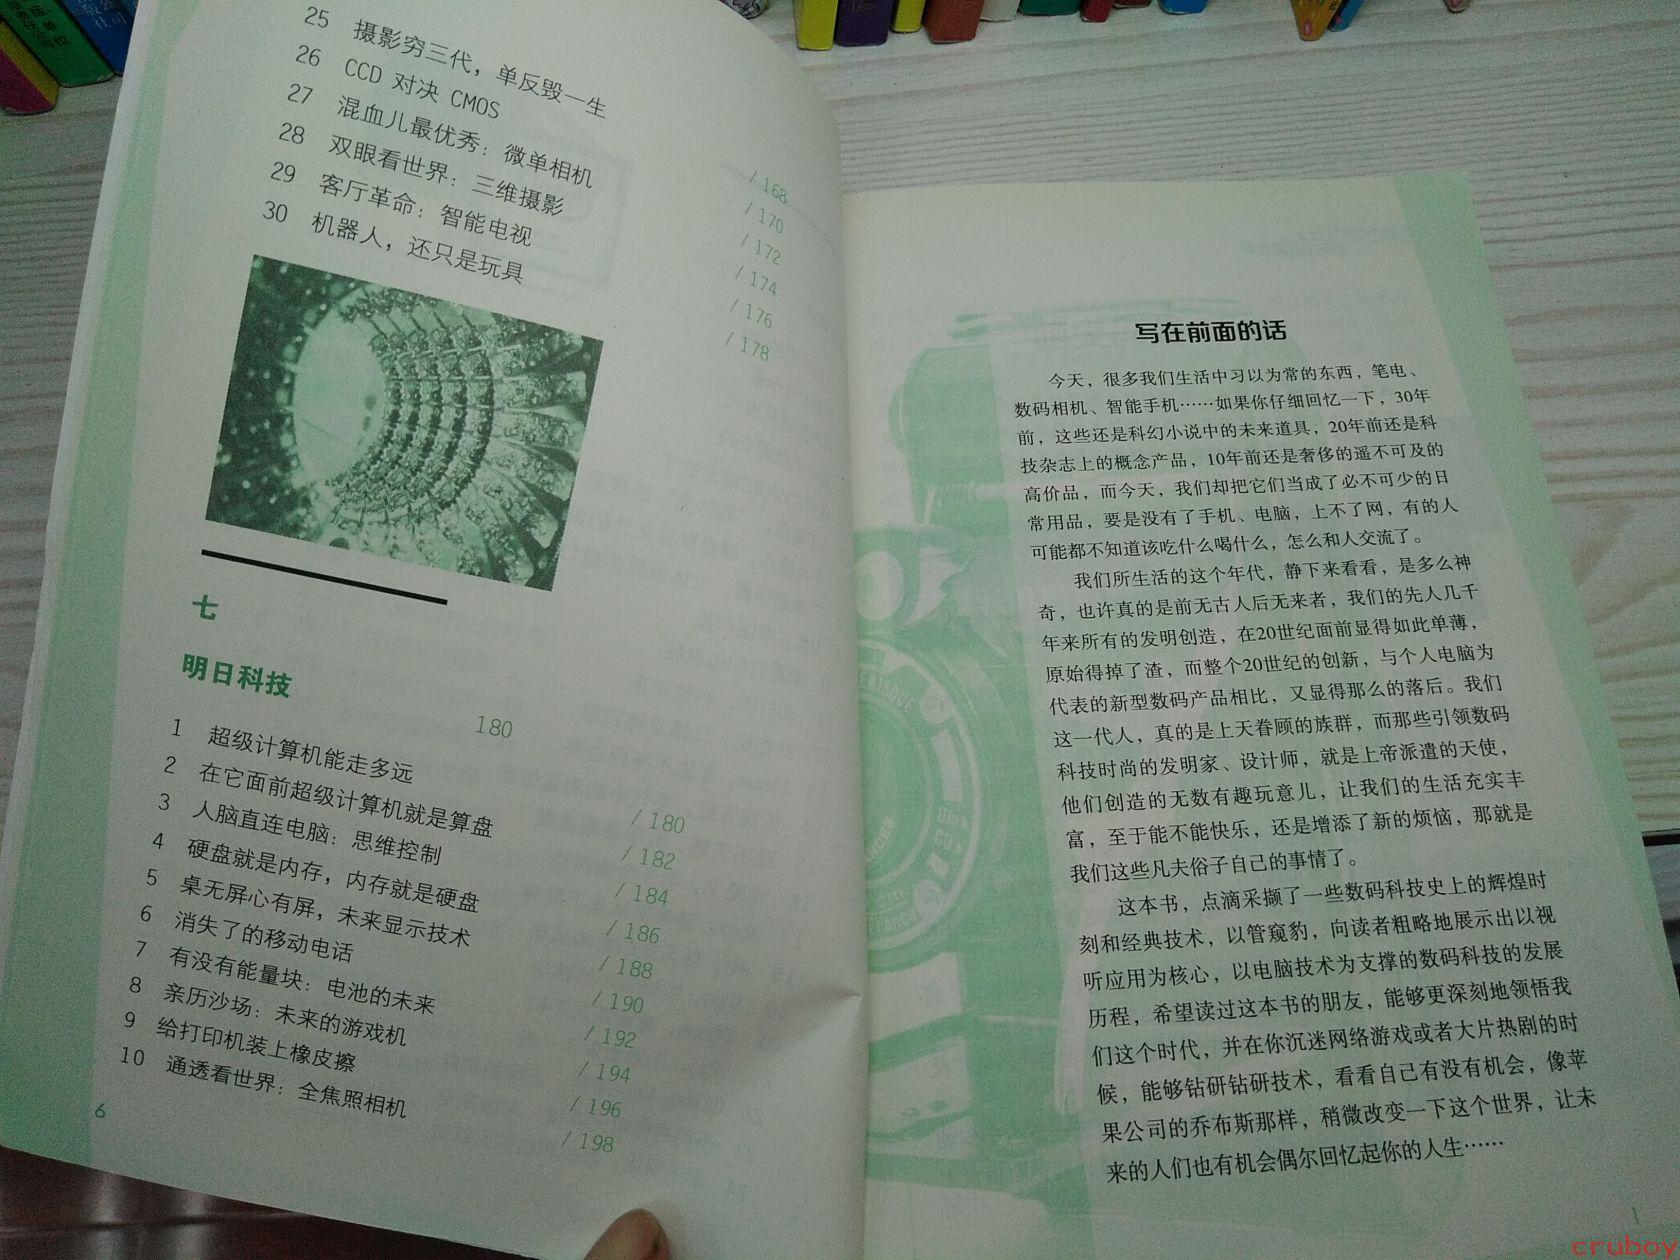 25 摄影穷三代，单反毁一生 / 168
26 CCD 对决 CMOS / 170
27 混血儿最优秀：微单相机 / 172
28 双眼看世界：三维摄影 / 174
29 客厅革命：智能电视 / 176
30 机器人，还只是玩具 / 178
七
明日科技 180
1 超级计算机能走多远 / 180
2 在它面前超级计算机就是算盘 / 182
3 人脑直连电脑：思维控制 / 184
4 硬盘就是内存，内存就是硬盘 / 186
5 桌无屏心有屏，未来显示技术 / 188
6 消失了的移动电话 / 190
7 有没有能量块：电池的未来 / 192
8 亲历沙场：未来的游戏机 / 194
9 给打印机装上橡皮擦 / 196
10 通透看世界：全焦照相机 / 198
6
写在前面的话
今天，很多我们生活中习以为常的东西，笔电、
数码相机、智能手机……如果你仔细回忆一下，30年
前，这些还是科幻小说中的未来道具，20年前还是科
技杂志上的概念产品，10年前还是奢侈的遥不可及的
高价品，而今天，我们却把它们当成了必不可少的日
常用品，要是没有了手机、电脑，上不了网，有的人
可能都不知道该吃什么喝什么，怎么和人交流了。
我们所生活的这个年代，静下来看看，是多么神
奇，也许真的是前无古人后无来者，我们的先人几千
年来所有的发明创造，在20世纪面前显得如此单薄，
原始得掉了渣，而整个20世纪的创新，与个人电脑为
代表的新型数码产品相比，又显得那么的落后。我们
这一代人，真的是上天眷顾的族群，而那些引领数码
科技时尚的发明家、设计师，就是上帝派遣的天使，
他们创造的无数有趣玩意儿，让我们的生活充实丰
富，至于能不能快乐，还是增添了新的烦恼，那就是
我们这些凡夫俗子自己的事情了。
这本书，点滴采撷了一些数码科技史上的辉煌时
刻和经典技术，以管窥豹，向读者粗略地展示出以视
听应用为核心，以电脑技术为支撑的数码科技的发展
历程，希望读过这本书的朋友，能够更深刻地领悟我
们这个时代，并在你沉迷网络游戏或者大片热剧的时
候，能够钻研钻研技术，看看自己有没有机会，像苹
果公司的乔布斯那样，稍微改变一下这个世界，让未
来的人们也有机会偶尔回忆起你的人生……
1
cruboy